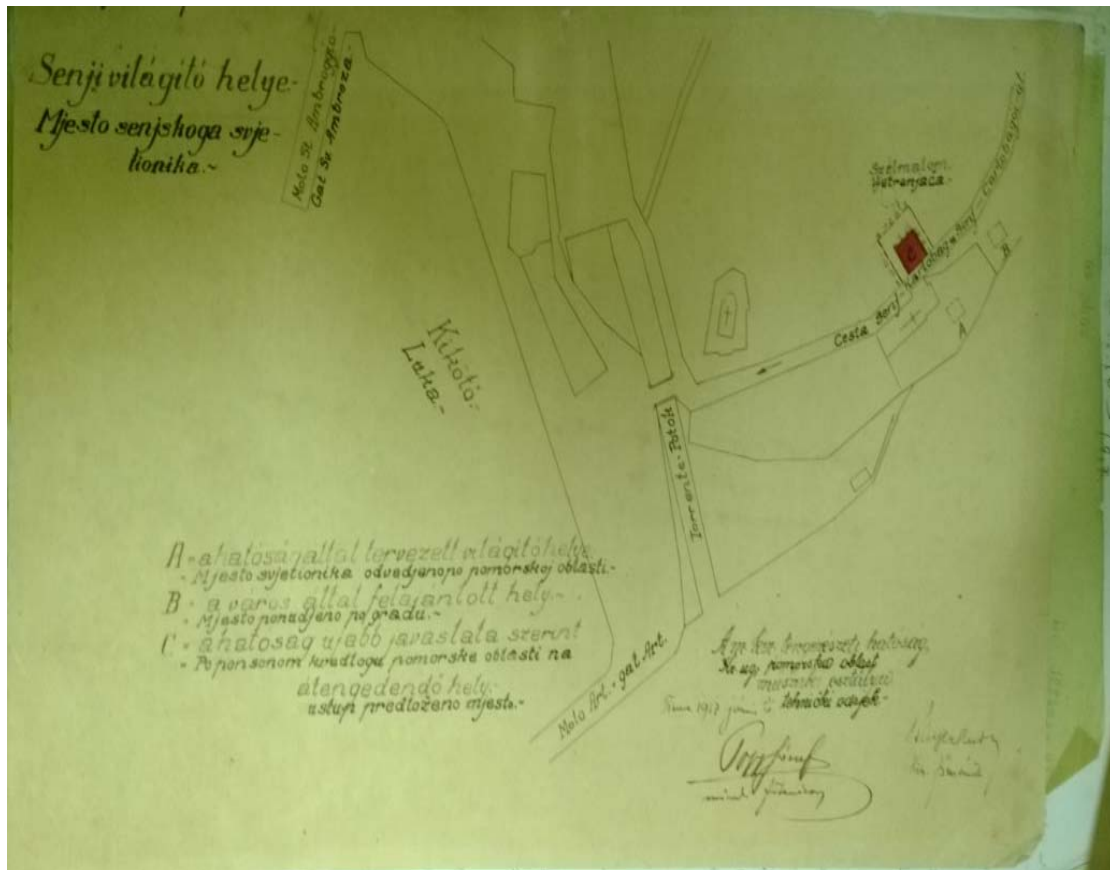 Senji világitó helye.-
Mjesto senjskoga svje-
tionika.~
Molo St. Ambroggio.-
Gat Sv. Ambroza.-
Szélmalom.
Vjetrenjaca.-
C
B
A
Cesta Senj-Karlobag = Senj-Carlobagoi ut.
Kikötö.-
Luka.-
Torrente-Potok
Molo Art.-gat Art.
A = a hatóság által tervezett világitó helye
= Mjesto svjetionika odredjeno po pomorskoj oblasti.-
B = a város által felajánlott hely.-
= Mjesto ponudjeno po gradu.-
C = a hatóság ujabb javaslata szerint
= Po ponovnom predlogu pomorske oblasti na
átengedendó hely.-
ustup predloženo mjesto.-
A m. kir. tengerészeti hatóság,
Kr. ug. pomorska oblast
müszaki osztálya
tehnički odsjek-
Fiume 1917
Popp József